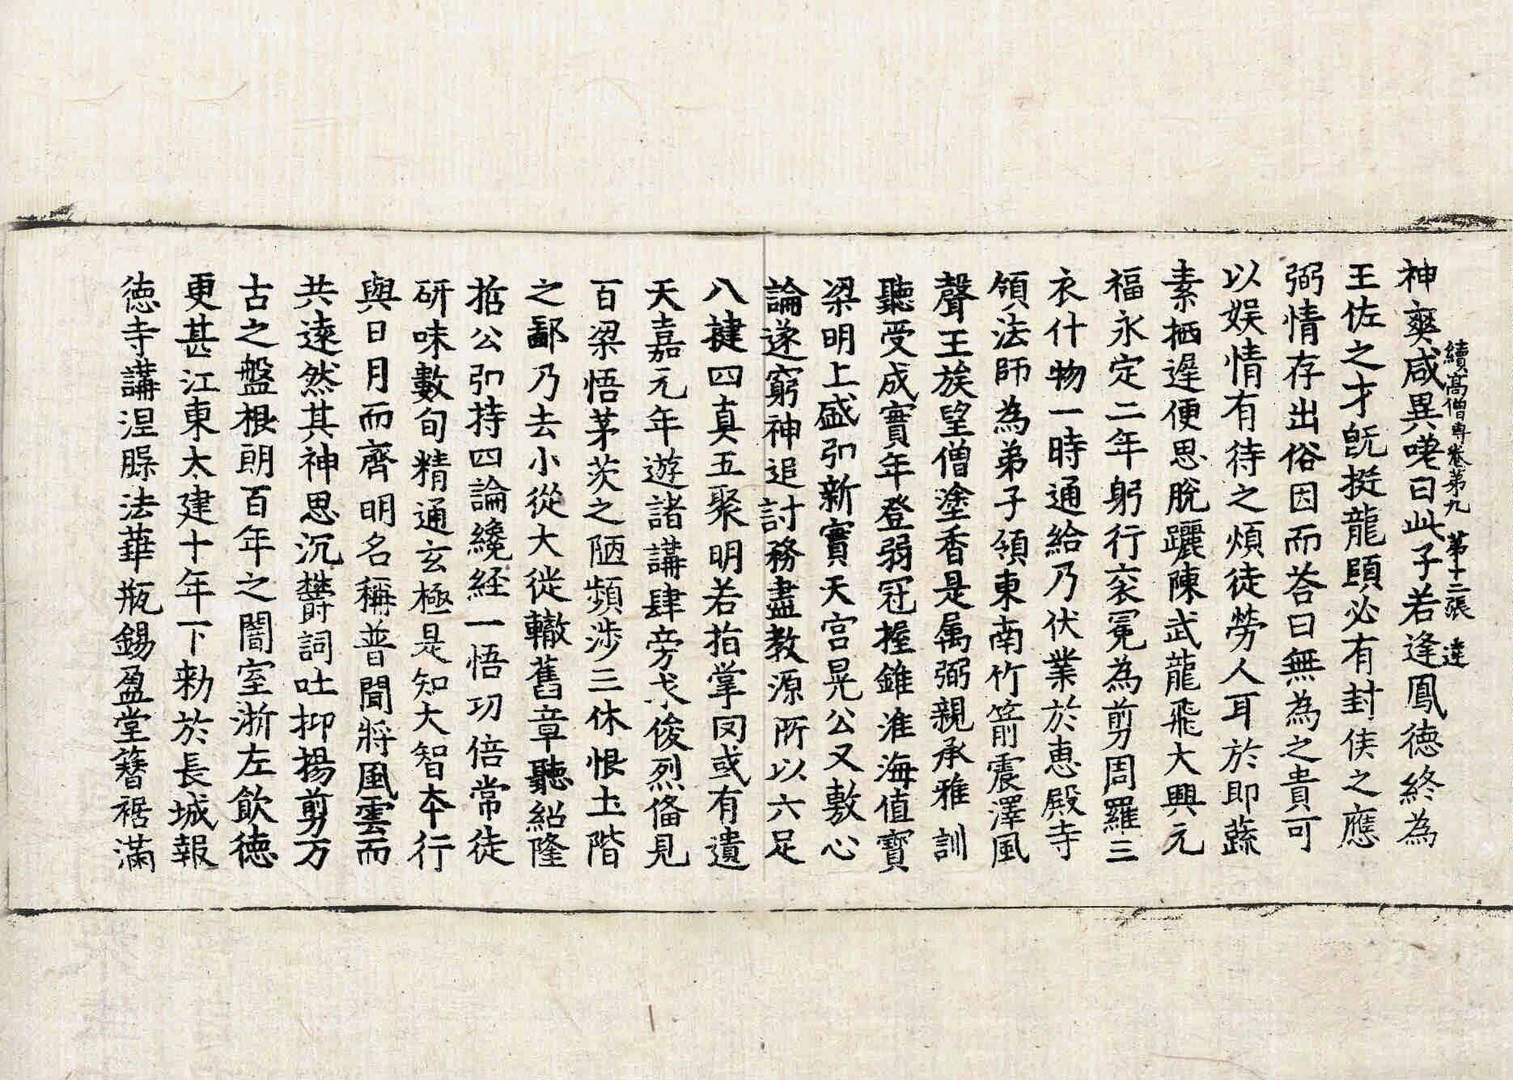 續高僧傳卷第九 第十二張 達
神爽咸異嘆曰此子若逢鳳德終為
王佐之才旣挺龍頤必有封侯之應
弼情存出俗因而荅曰無為之貴可
以娛情有待之煩徒勞人耳於即蔬
素栖遲便思脫躧陳武龍飛大興元
福永定二年躬行袞冕為剪周羅三
衣什物一時通給乃伏業於惠殿寺
領法師為弟子領東南竹箭震澤風
聲王族望僧塗香是属弼親承雅訓
聽受成實年登弱冠握錐淮海值寶
梁明上盛弘新實天宮晃公又敷心
論遂窮神追討務盡教源所以六足
八揵四真五聚明若指掌罔或有遺
天嘉元年遊諸講肆旁求俊烈俻見
百梁悟茅茨之陋頻涉三休恨土階
之鄙乃去小從大徙轍舊章聽紹隆
哲公弘持四論纔經一悟功倍常徒
研味數旬精通玄極是知大智本行
與日月而齊明名稱普聞將風雲而
共遠然其神思沉欝詞吐抑揚剪万
古之盤根朗百年之闇室浙左飲德
更甚江東太建十年下勑於長城報
德寺講涅槃法華瓶錫盈堂簪裾滿